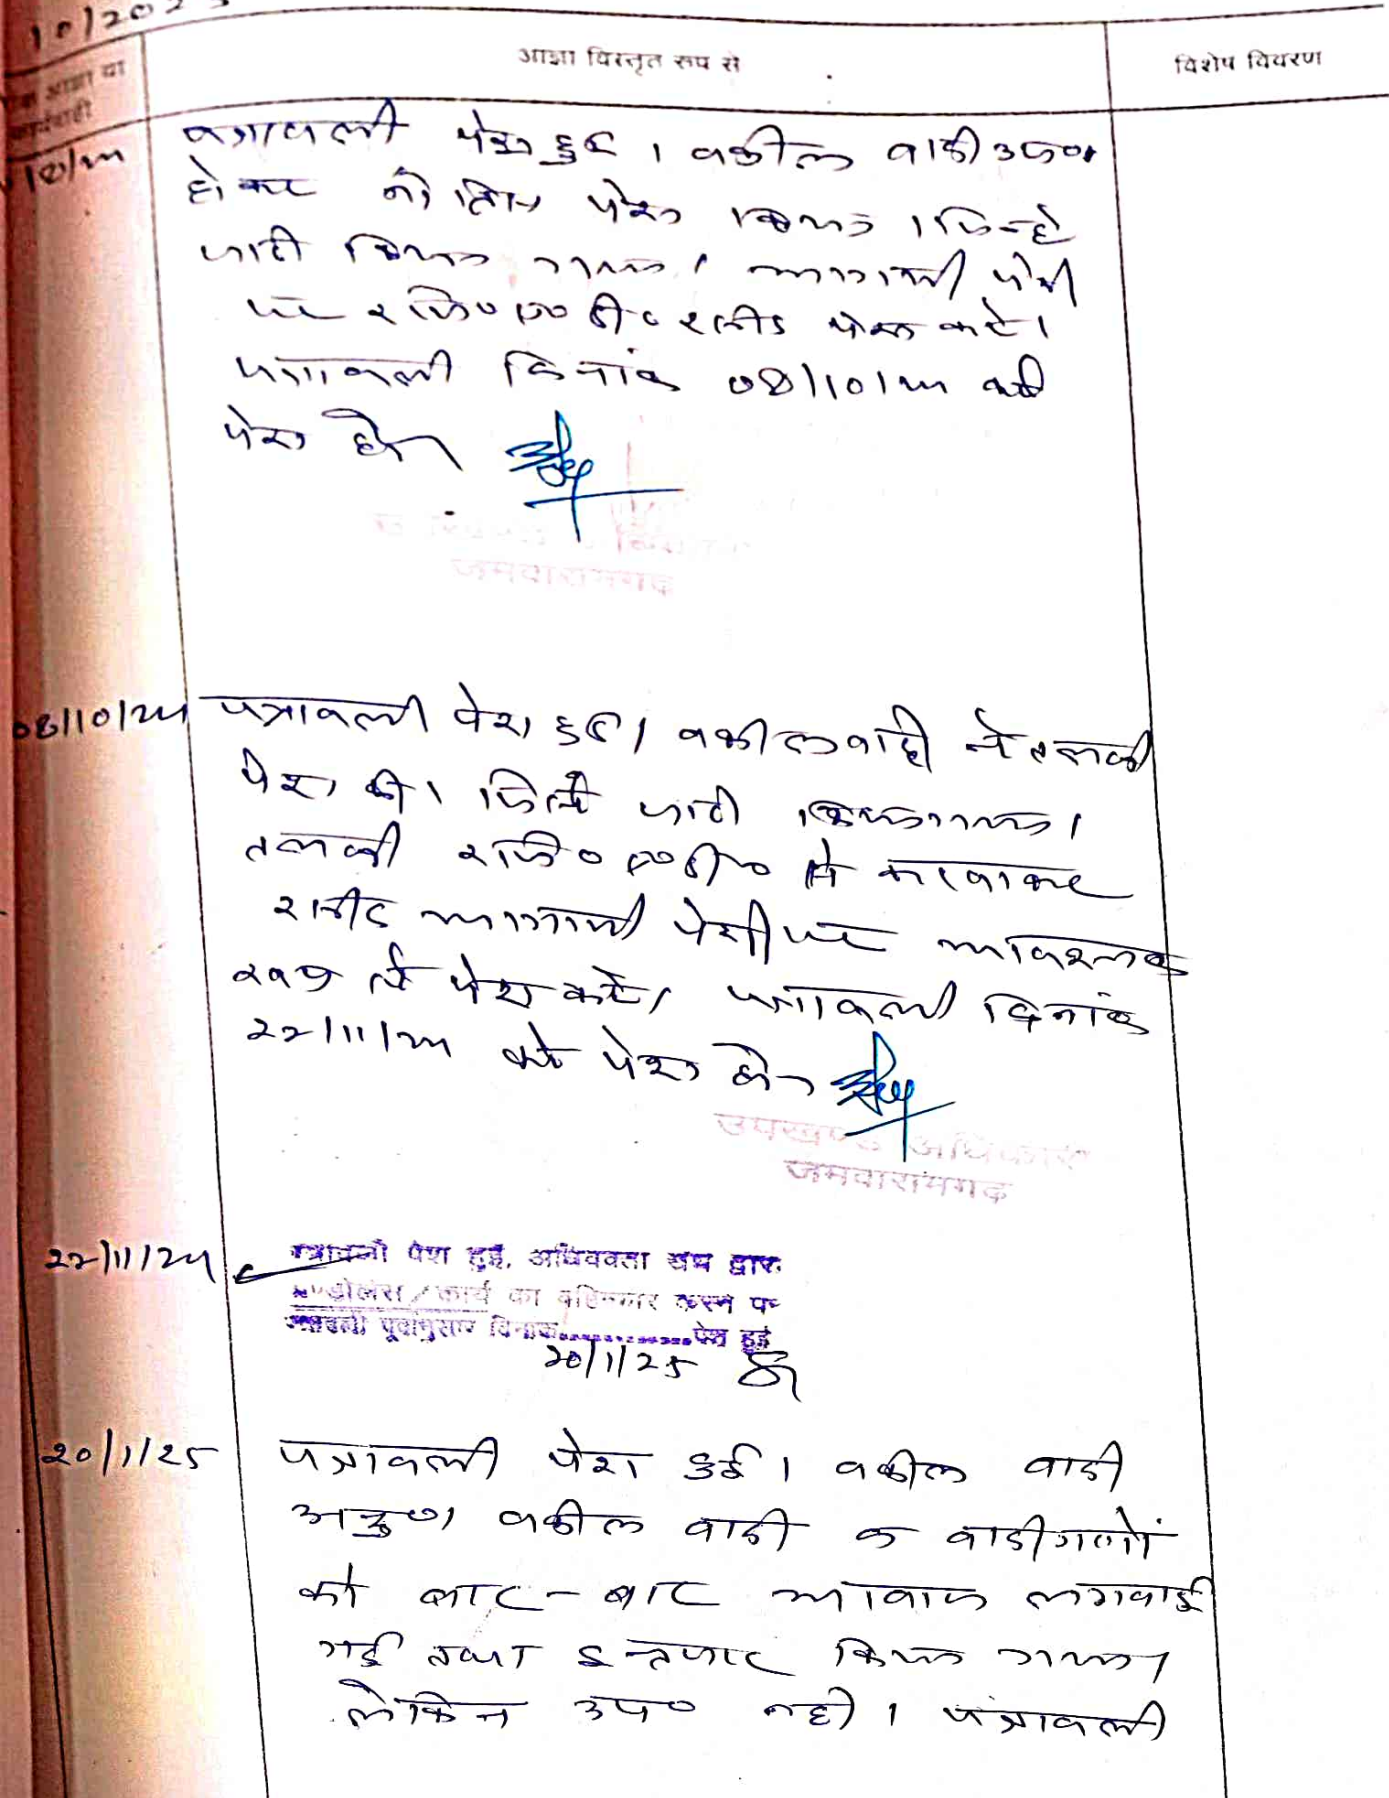 10/202
आज्ञा विस्तृत रूप से
विशेष विवरण
आज्ञा या
कार्यवाही
पत्रावली पेश हुई । वकील वादी उप०
होकर नोटिस पेश किया । जिन्हे
जारी किया गया । आगामी पेशी
पर रजि० ए० डी० रसीद पेश करें।
पत्रावली दिनांक 08/10/24 को
पेश हो।
जमवारामगढ
08/10/24 पत्रावली पेश हुई। वकील वादी ने तलबी
पेश की। जिसे जारी किया गया।
तलबी रजि० ए० डी० से करवाकर
रसीद आगामी पेशी पर आवश्यक
रूप से पेश करें। पत्रावली दिनांक
22/11/24 को पेश हो।
उपखण्ड अधिकारी
जमवारामगढ
22/11/24 पत्रावली पेश हुई, अधिवक्ता संघ द्वारा
कार्य का बहिष्कार करने पर
पत्रावली पूर्वानुसार दिनांक..............पेश हुई
20/1/25
20/1/25 पत्रावली पेश हुई । वकील वादी
अनु०। वकील वादी व वादीगणों
को बार-बार आवाज लगवाई
गई तथा इन्तजार किया गया।
लेकिन उप० नही । पत्रावली